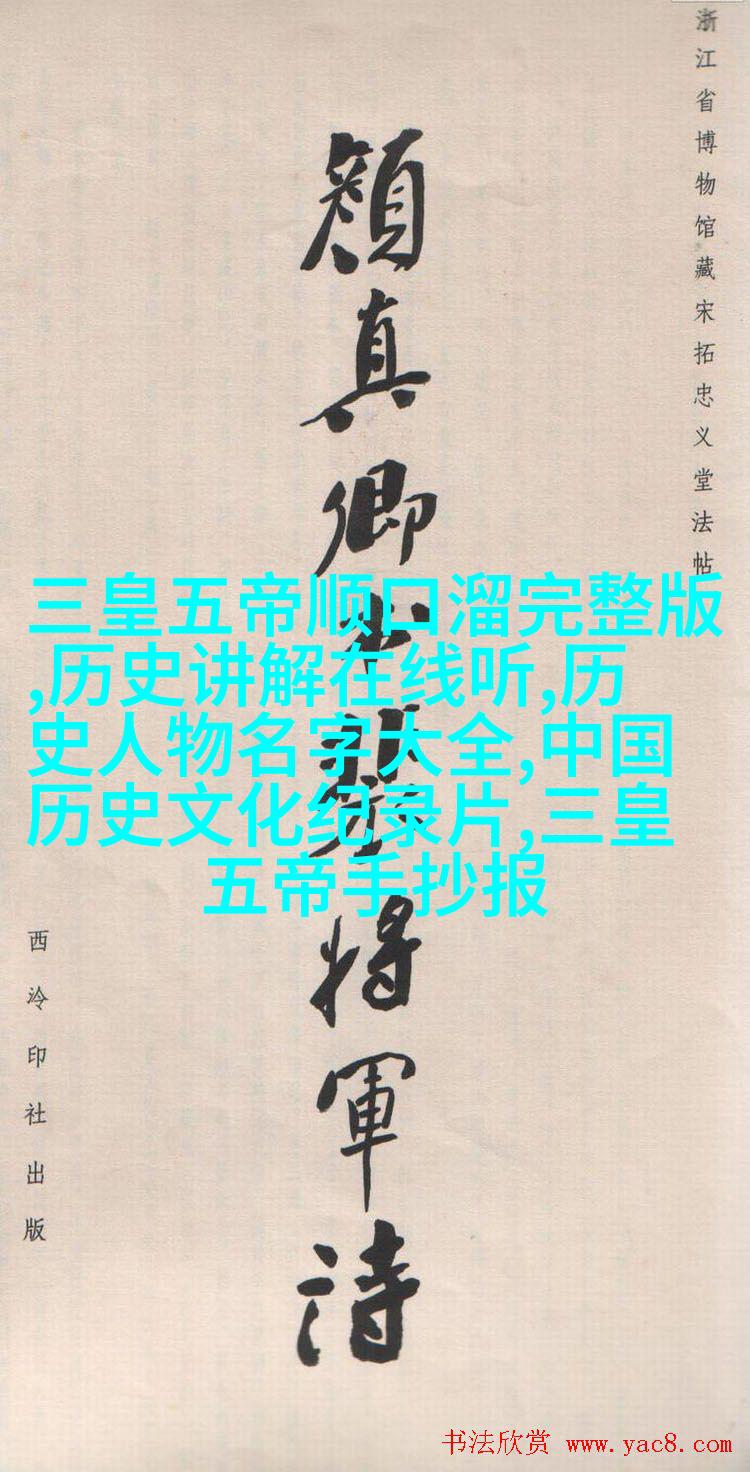 浙江省博物馆藏宋拓忠义堂法帖
顔真卿将軍詩
三皇五帝顺口溜完整版
,历史讲解在线听,历
史人物名字大全,中国
历史文化纪录片,三皇
五帝手抄报
西泠印社出版
书法欣赏 www.yac8.com